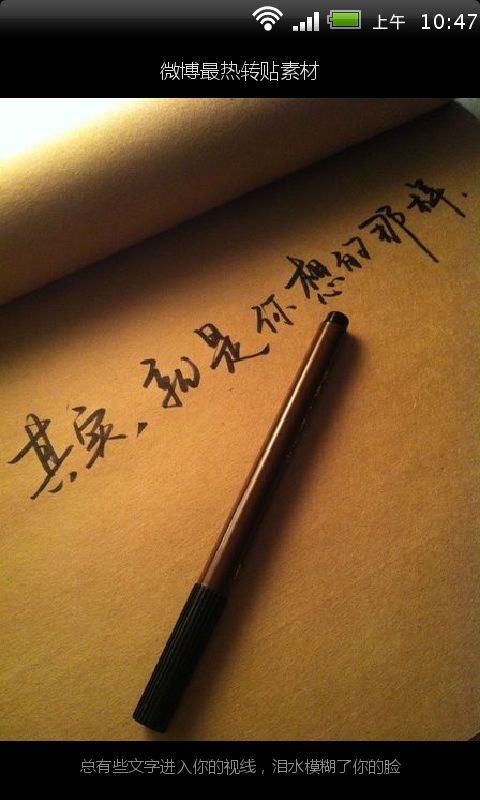 上午 10:47
微博最热转贴素材
其实，就是你想的那样.
总有些文字进入你的视线，泪水模糊了你的脸